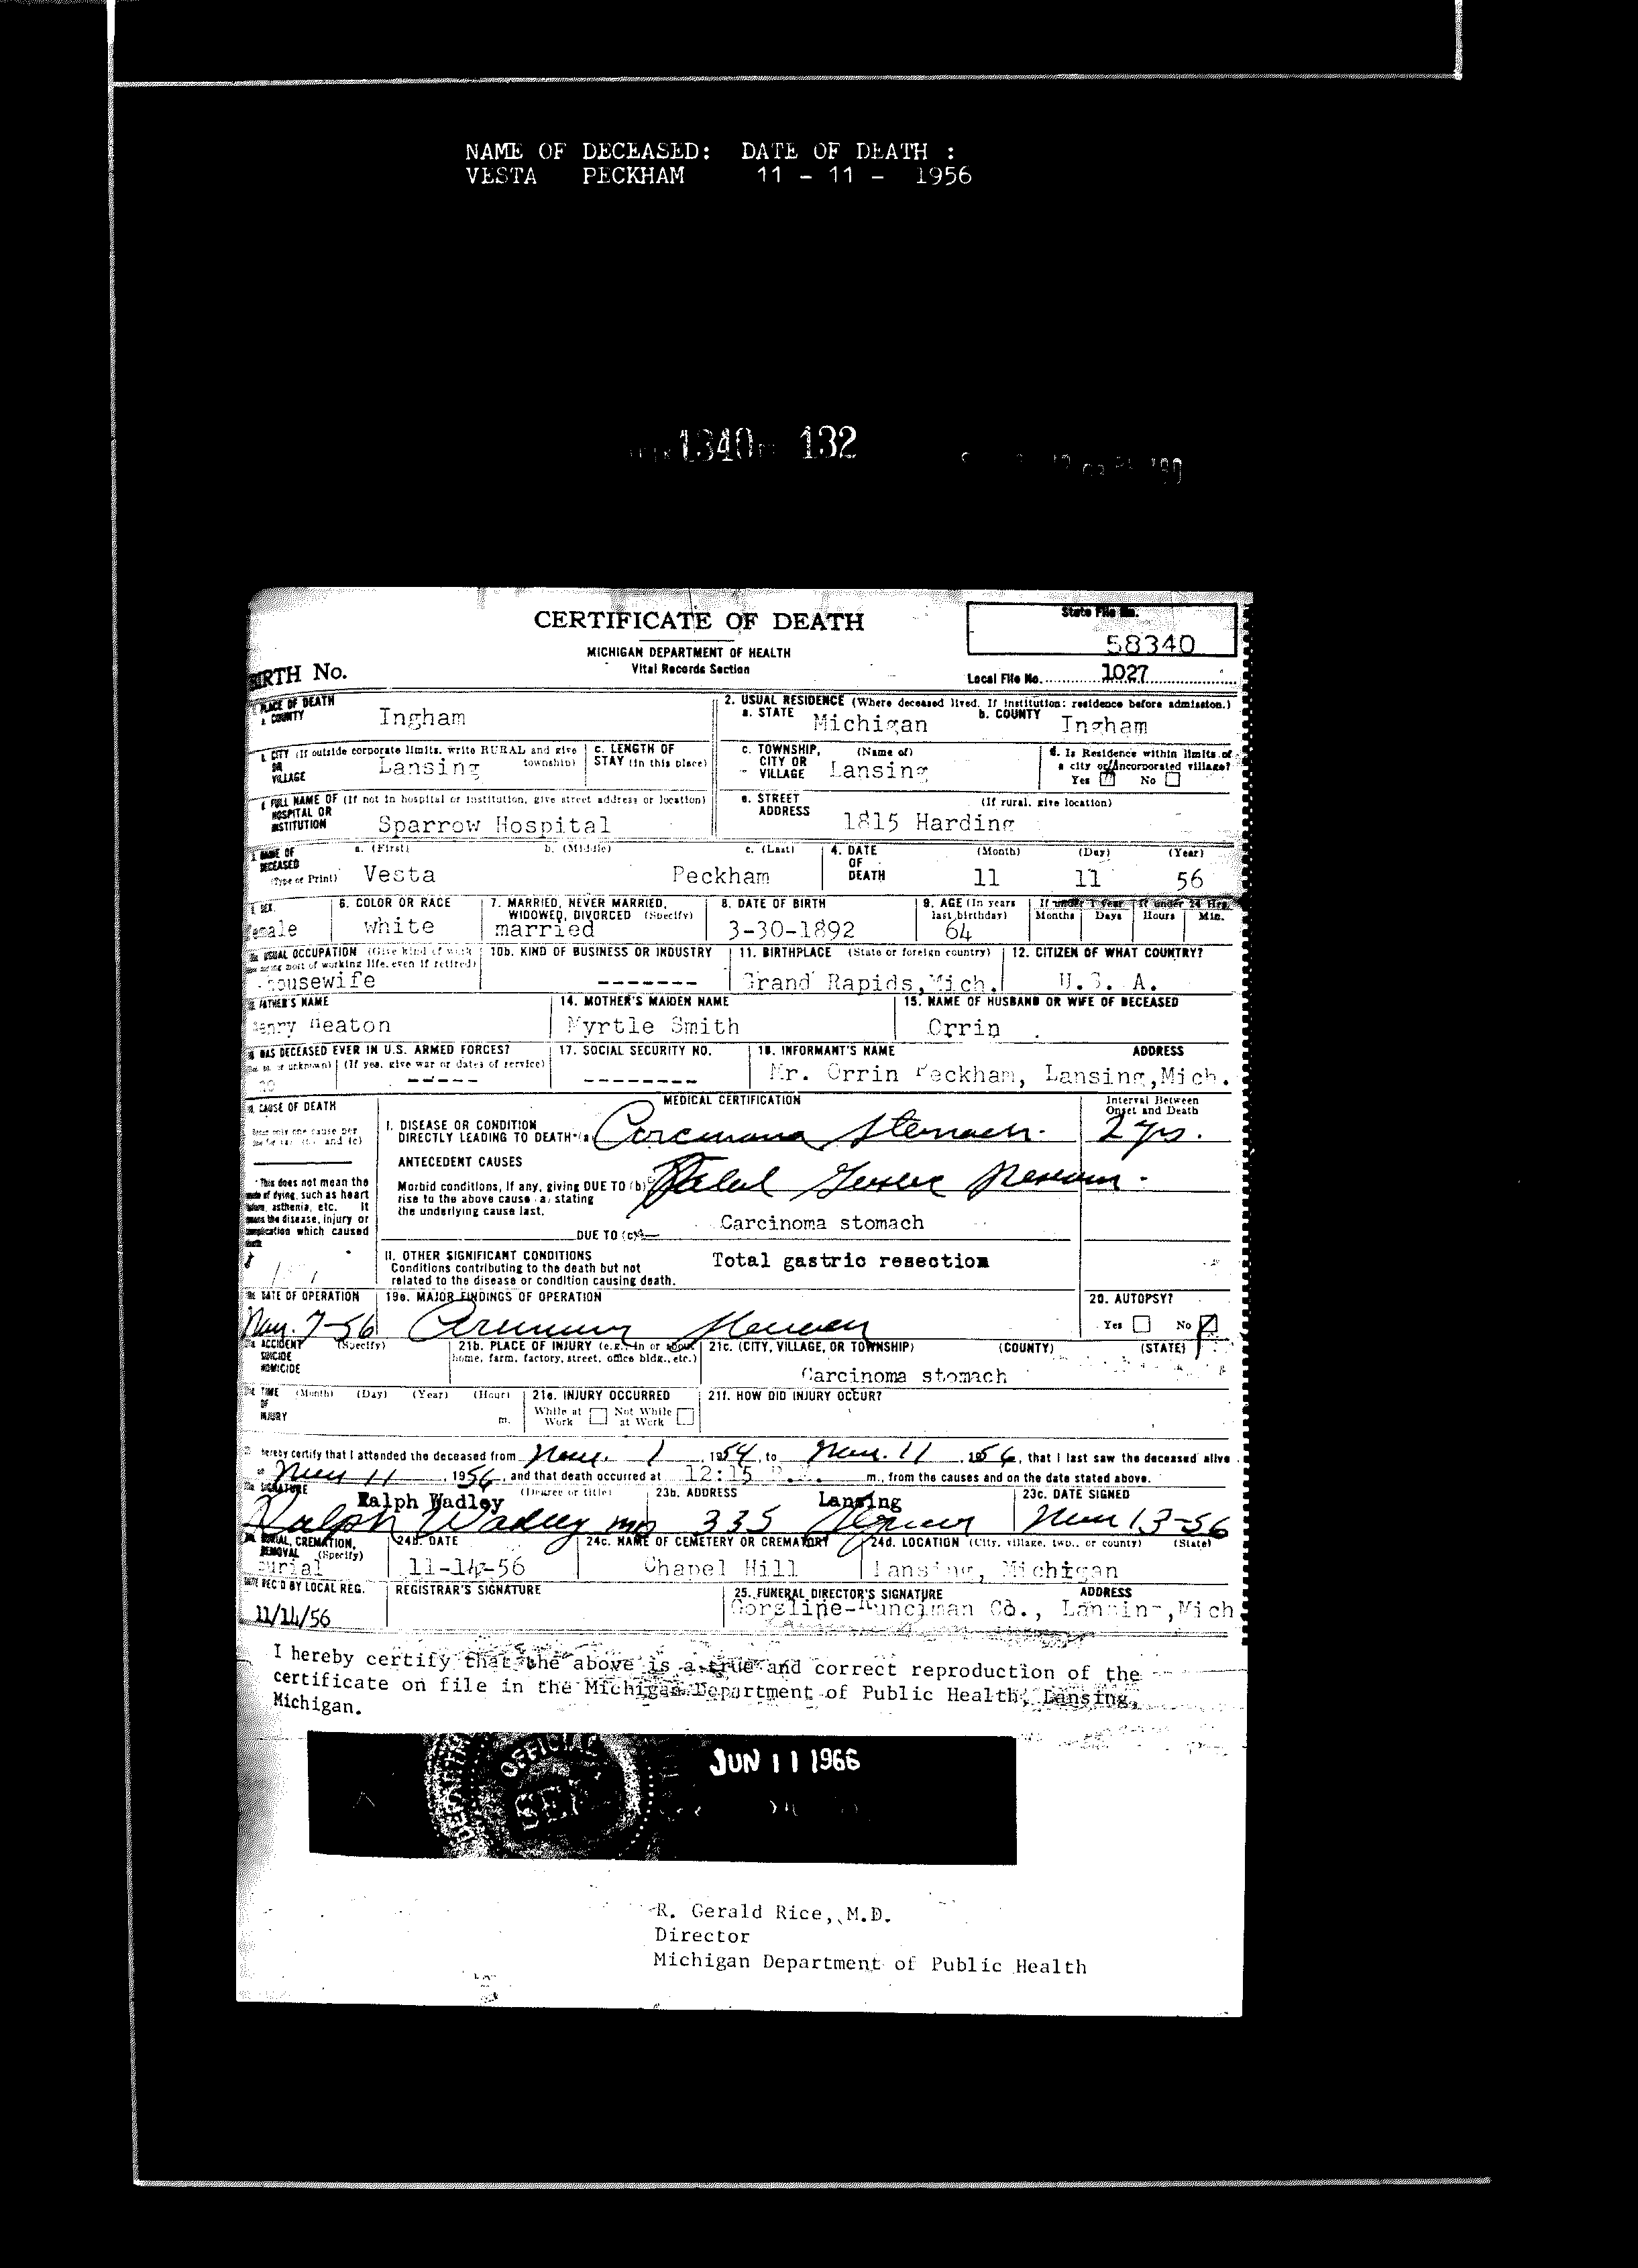 NAME OF DECEASED: DATE OF DEATH :
VESTA PECKHAM 11 - 11 - 1956
1340 132
CERTIFICATE OF DEATH
MICHIGAN DEPARTMENT OF HEALTH
Vital Records Section
State File No.
58340
BIRTH No.
Local File No. 1027
1. PLACE OF DEATH
a. COUNTY Ingham
2. USUAL RESIDENCE (Where deceased lived. If institution: residence before admission.)
a. STATE Michigan b. COUNTY Ingham
b. CITY (If outside corporate limits, write RURAL and give township)
OR
VILLAGE Lansing
c. LENGTH OF
STAY (in this place)
c. TOWNSHIP, (Name of)
CITY OR
VILLAGE Lansing
d. Is Residence within limits of
a city or incorporated village?
Yes No
d. FULL NAME OF (If not in hospital or institution, give street address or location)
HOSPITAL OR
INSTITUTION Sparrow Hospital
e. STREET (If rural, give location)
ADDRESS 1815 Harding
3. NAME OF
DECEASED
(Type or Print)
a. (First) b. (Middle) c. (Last)
Vesta Peckham
4. DATE
OF
DEATH
(Month) (Day) (Year)
11 11 56
5. SEX
Female
6. COLOR OR RACE
white
7. MARRIED, NEVER MARRIED,
WIDOWED, DIVORCED (Specify)
married
8. DATE OF BIRTH
3-30-1892
9. AGE (In years
last birthday)
64
If under 1 Year If under 24 Hrs.
Months Days Hours Min.
USUAL OCCUPATION (Give kind of work
during most of working life, even if retired)
housewife
10b. KIND OF BUSINESS OR INDUSTRY
-------
11. BIRTHPLACE (State or foreign country)
Grand Rapids, Mich.
12. CITIZEN OF WHAT COUNTRY?
U.S. A.
13. FATHER'S NAME
Henry Heaton
14. MOTHER'S MAIDEN NAME
Myrtle Smith
15. NAME OF HUSBAND OR WIFE OF DECEASED
Orrin
WAS DECEASED EVER IN U.S. ARMED FORCES?
(Yes, no, or unknown) (If yes, give war or dates of service)
no -----
17. SOCIAL SECURITY NO.
--------
18. INFORMANT'S NAME ADDRESS
Mr. Orrin Peckham, Lansing, Mich.
CAUSE OF DEATH
Enter only one cause per
line for (a), (b), and (c)
*This does not mean the
mode of dying, such as heart
failure, asthenia, etc. It
means the disease, injury or
complication which caused
death.
MEDICAL CERTIFICATION
Interval Between
Onset and Death
I. DISEASE OR CONDITION
DIRECTLY LEADING TO DEATH* (a) Carcinoma Stomach. 2 yrs.
ANTECEDENT CAUSES
Morbid conditions, if any, giving DUE TO (b) Total Gastric Resection.
rise to the above cause (a) stating
the underlying cause last.
Carcinoma stomach
DUE TO (c)
II. OTHER SIGNIFICANT CONDITIONS
Conditions contributing to the death but not
related to the disease or condition causing death.
Total gastric resection
DATE OF OPERATION
Nov. 7-56
19b. MAJOR FINDINGS OF OPERATION
Carcinoma Stomach
20. AUTOPSY?
Yes No
ACCIDENT (Specify)
SUICIDE
HOMICIDE
21b. PLACE OF INJURY (e.g., in or about
home, farm, factory, street, office bldg., etc.)
21c. (CITY, VILLAGE, OR TOWNSHIP) (COUNTY) (STATE)
Carcinoma stomach
TIME (Month) (Day) (Year) (Hour)
OF
INJURY m.
21e. INJURY OCCURRED
While at Work Not While at Work
21f. HOW DID INJURY OCCUR?
hereby certify that I attended the deceased from Nov. 1, 1954, to Nov. 11, 1956, that I last saw the deceased alive
on Nov 11, 1956, and that death occurred at 12:15 m., from the causes and on the date stated above.
SIGNATURE (Degree or title)
Ralph Wadley
Ralph Wadley MD
23b. ADDRESS
Lansing
335
23c. DATE SIGNED
Nov 13-56
BURIAL, CREMATION,
REMOVAL (Specify)
burial
24b. DATE
11-14-56
24c. NAME OF CEMETERY OR CREMATORY
Chapel Hill
24d. LOCATION (City, village, twp., or county) (State)
Lansing, Michigan
DATE REC'D BY LOCAL REG.
11/14/56
REGISTRAR'S SIGNATURE
25. FUNERAL DIRECTOR'S SIGNATURE ADDRESS
Gorsline-Runciman Co., Lansing, Mich.
I hereby certify that the above is a true and correct reproduction of the
certificate on file in the Michigan Department of Public Health, Lansing,
Michigan.
OFFICIAL
SEAL
JUN 11 1966
R. Gerald Rice, M.D.
Director
Michigan Department of Public Health